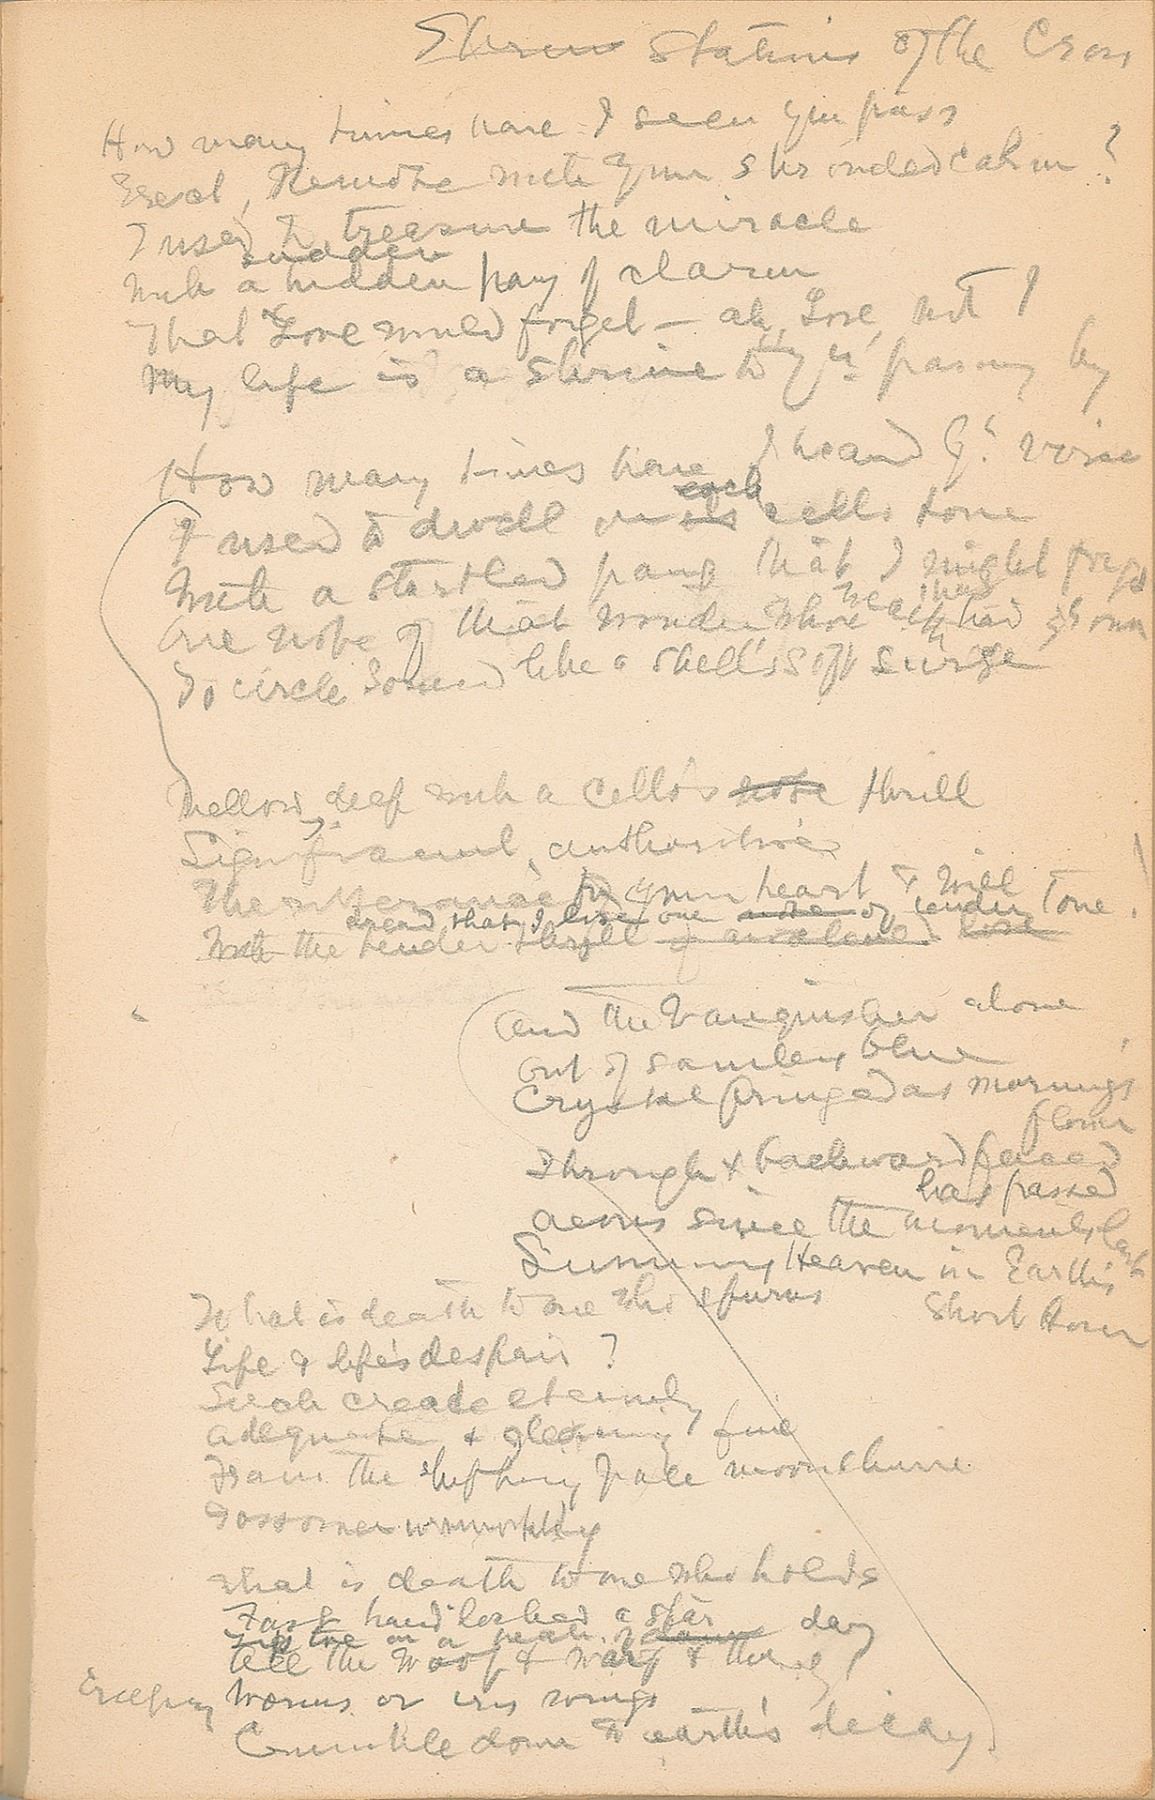 Stations of the Cross
How many times have I seen you pass
Great, Remote with your shrouded calm?
I used to treasure the miracle
sudden
with a hidden pang of alarm
That Love would forget — ah, Love, not I
My life is a shrine to yr. passing by
How many times have I heard yr. voice
each
I used to dwell on its cello tone
With a startled pang that I might forget
One note of that wonder whose
To circle Sound like a shell's soft surge
Mellow, deep with a cello's note thrill
Significant, authoritive
The utterance by your heart & will
dread that I lose one note of tender Tone!
With the tender
And the Vanquisher alone
out of samlex blue
Crystal fringed as morning's
flower
Through & backward
has passed
aeons since the moment last
Summing Heaven in Earth's
Short Hour
What is death to one who spurns
Life & life's despair?
Such create eternity
Adequate & gleaming fine
From the shifting pale moonshine
Gossamer
What is death to one who holds
Fast hand locked a star
day
Tip toe on a peak of
tell the woof & warp &
Excepting
Worms or iris wings
Crumble down to earth's decay